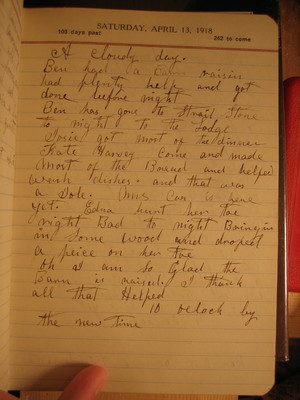 SATURDAY, APRIL 13, 1918
103 days past
262 to come
A cloudy day.
Ben had a barn raisin
had plenty help and got
done before night
Ben has gone to Strait Stone
to night to the Lodge
Josie got most of the dinner
Kate Harvey Come and made
most of the Bread and helped
wash dishes. and that was
a Sole. Mrs Cox is here
yet. Edna hurt her toe
right Bad to night Bringin
in some wood and dropt
a peice on her toe
oh I am so Glad the
barn is raised. I thank
all that Helped
10 oclock by
the new time